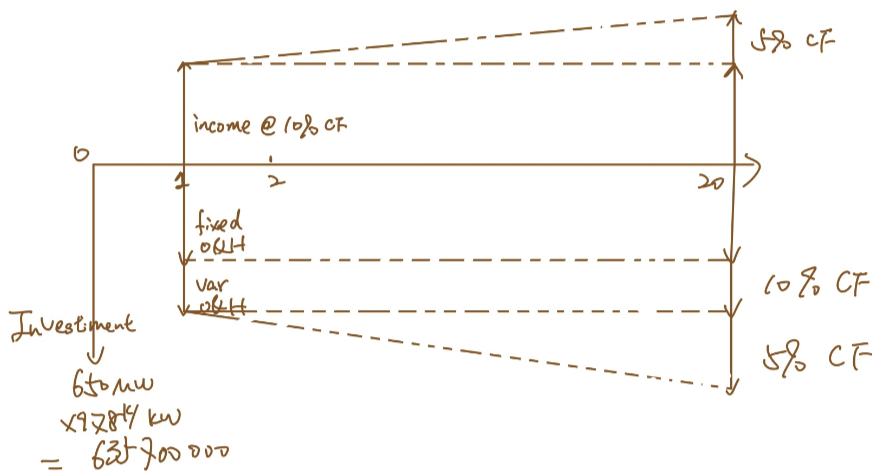 5% CF
income @ 10% CF
0
1
2
20
fixed
O&M
var
O&M
10% CF
Investiment
5% CF
650 MW
x978 $/kW
= 635700000